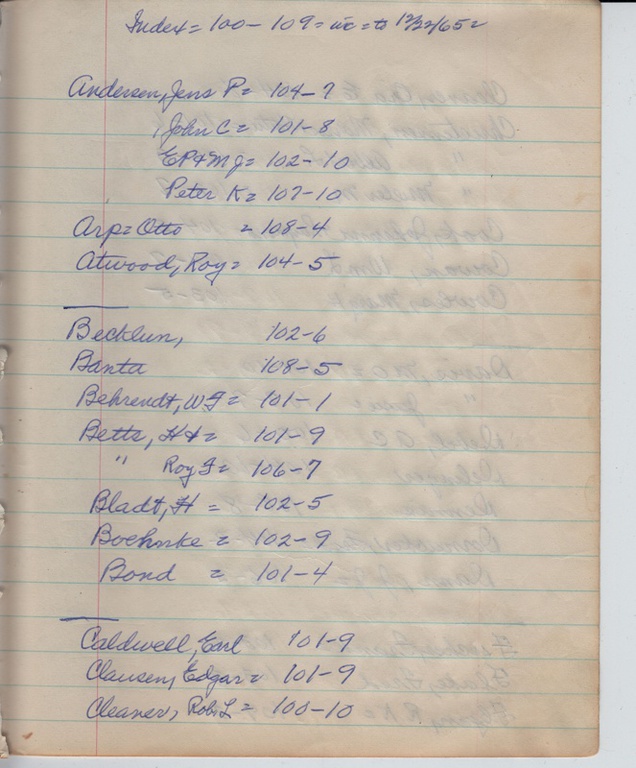 Index = 100-109 = inc = to 12/22/65 =
Andersen, Jens P = 104-7
, John C = 101-8
EP & MJ = 102-10
Peter K = 107-10
Arp = Otto = 108-4
Atwood, Roy = 104-5
Becklun, 102-6
Banta 108-5
Behrendt, WF = 101-1
Betts, H = 101-9
" Roy F = 106-7
Bladt, H = 102-5
Boehnke = 102-9
Bond = 101-4
Caldwell, Earl 101-9
Clausen, Edgar = 101-9
Cleaner, Robt L = 100-10